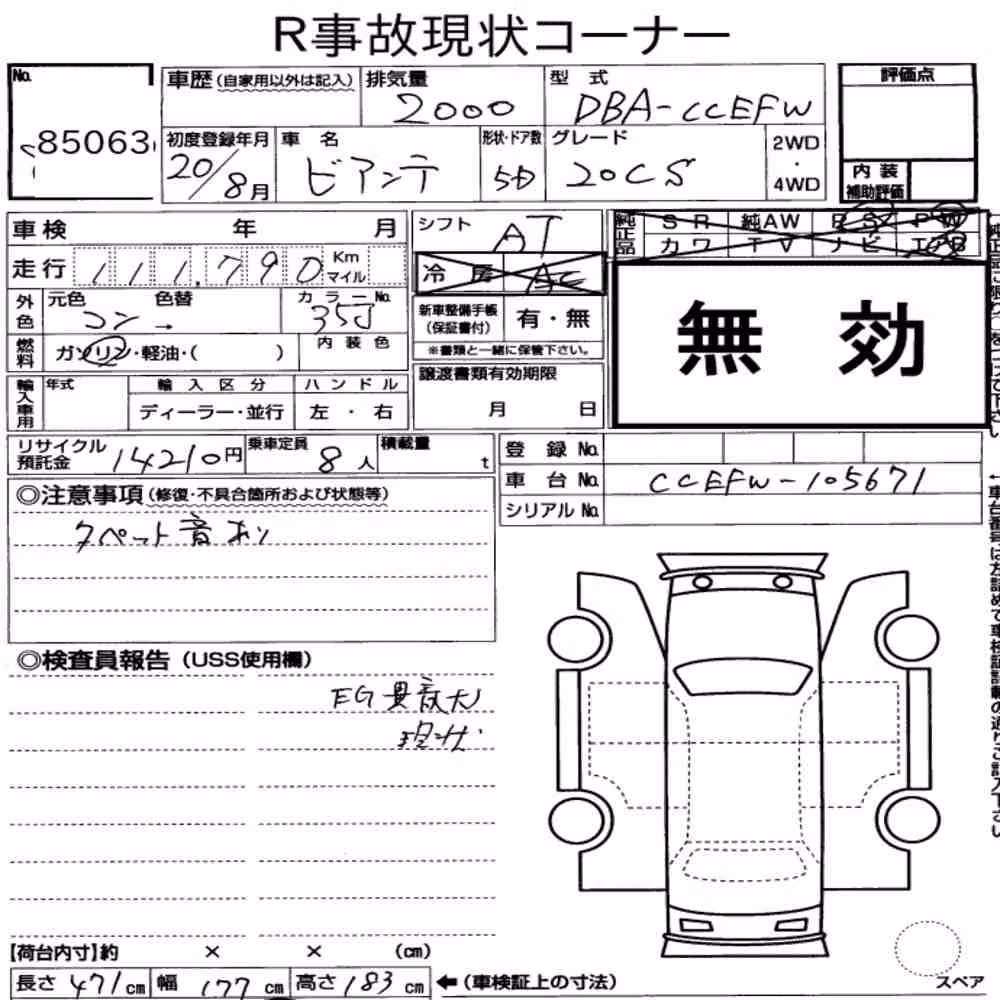 R事故現状コーナー
No. 85063
車歴(自家用以外は記入)
排気量 2000
型式 DBA-CCEFW
評価点
初度登録年月 20/8月
車名 ビアンテ
形状・ドア数 5D
グレード 20CS
2WD・4WD
内装補助評価
車検 年 月
走行 111,790 Km マイル
外色 元色 コン→ 色替 カラーNo. 35J
燃料 ガソリン・軽油・( ) 内装色
輸入車用 年式 輸入区分 ハンドル
ディーラー・並行 左・右
シフト AT
冷房 AC
新車整備手帳(保証書付) 有・無
※書類と一緒に保管下さい。
譲渡書類有効期限
月 日
純正品 SR 純AW PS PW
カワ TV ナビ エアB
無効
リサイクル預託金 14210円
乗車定員 8人
積載量 t
登録No.
車台No. CCEFW-105671
シリアルNo.
◎注意事項(修復・不具合箇所および状態等)
タペット音あり
◎検査員報告(USS使用欄)
EG異音大
現状
【荷台内寸】約 × × (cm)
長さ 471cm 幅 177cm 高さ 183cm ←(車検証上の寸法)
スペア